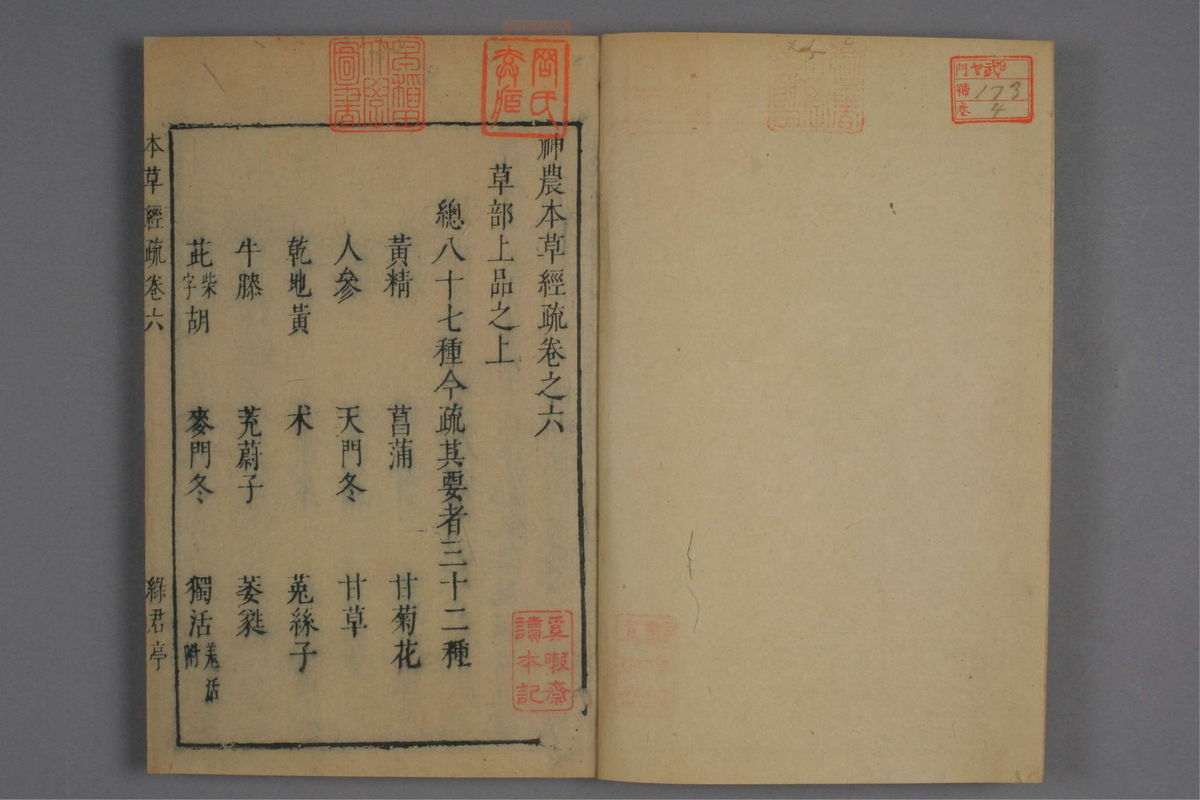 神農本草經疏卷之六
草部上品之上
總八十七種今疏其要者三十二種
黃精 菖蒲 甘菊花
人參 天門冬 甘草
乾地黃 术 菟絲子
牛膝 茺蔚子 萎蕤
茈柴字胡 麥門冬 獨活羌活附
本草經疏卷六 綠君亭
奚暇齋讀本記
門
號 173
卷 4